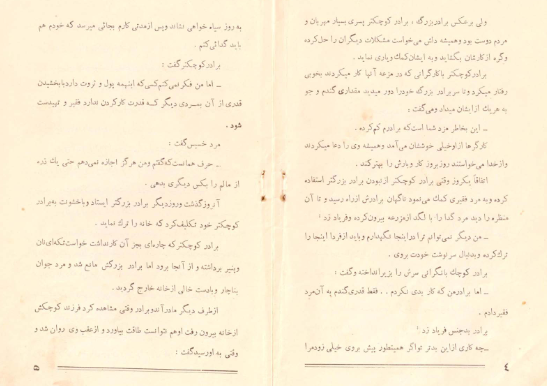 ولی برعکس برادربزرگ، برادر کوچکتر پسری بسیار مهربان و
مردم دوست بود وهمیشه دلش میخواست مشکلات دیگران را حل کرده
وگره از کارشان بگشاید و به ایشان کمک ویاری نماید .
برادر کوچکتر با کارگرانی که در مزرعه آنها کار میکردند بخوبی
رفتار میکرد و تا سر برادر بزرگ خودرا دور میدید مقداری گندم و جو
به هریک از ایشان میداد و میگفت :
ــ این بخاطر مزد شما است که برادرم کم کرده .
کارگرها از او خیلی خوششان می‌آمد وهمیشه وی را دعا میکردند
واز خدا می‌خواستند روز بروز کار وبارش را بهتر کند .
اتفاقاً یکروز وقتی برادر کوچکتر از نبودن برادر بزرگتر استفاده
کرده وبه مرد فقیری کمک می‌نمود ناگهان برادرش از راه رسید و تا آن
منظره را دید مرد گدا را با لگد از مزرعه بیرون کرده وفریاد زد :
ــ من دیگر نمی‌توانم ترا در اینجا نگهدارم وباید از فردا اینجا را
ترک کرده وبدنبال سرنوشت خودت بروی .
برادر کوچک با نگرانی سرش را بزیر انداخته وگفت :
ــ اما برادر من که کار بدی نکردم . . . فقط قدری گندم به آن مرد
فقیر دادم .
برادر بدجنس فریاد زد :
ــ چه کاری از این بدتر تو اگر همینطور پیش بروی خیلی زود مرا
٤
به روز سیاه خواهی نشاند وپس از مدتی کارم بجائی میرسد که خودم هم
باید گدائی کنم .
برادر کوچکتر گفت :
ــ اما من فکر نمی‌کنم کسی که اینهمه پول و ثروت دارد با بخشیدن
قدری از آن بمردی دیگر که قدرت کار کردن ندارد فقیر و تهیدست
شود .
مرد خسیس گفت :
ــ حرف همانست که گفتم ومن هرگز اجازه نمی‌دهم حتی یک ذره
از مالم را بکس دیگری بدهی .
آنروز گذشت وروز دیگر برادر بزرگتر ایستاد و با خشونت به برادر
کوچکتر خود تکلیف کرد که خانه را ترک نماید .
برادر کوچکتر که چاره‌ای بجز آن کار نداشت خواست تکه‌ای نان
وپنیر برداشته و از آنجا برود اما برادر بزرگش مانع شد و مرد جوان
بناچار وبا دست خالی از خانه خارج گردید .
از طرف دیگر مادر آندو برادر وقتی مشاهده کرد فرزند کوچکش
از خانه بیرون رفت او هم نتوانست طاقت بیاورد و از عقب وی روان شد و
وقتی به او رسید گفت :
٥